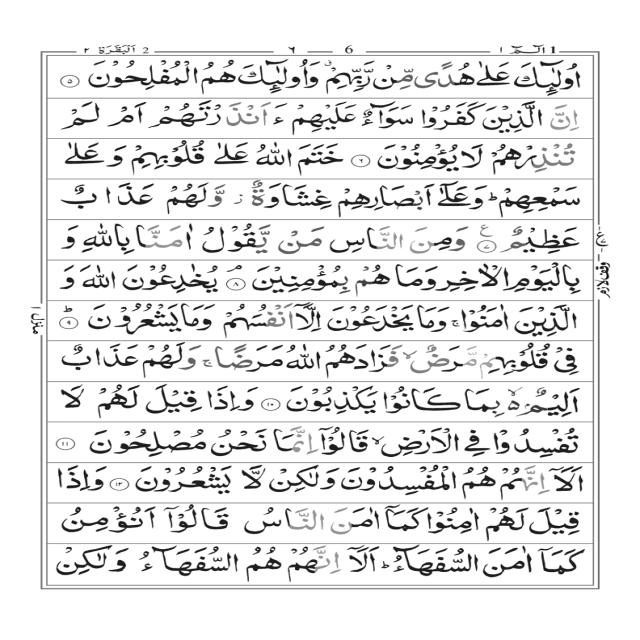 2 اَلْبَقَرَة ٢ ٦ 6 الٓمّٓ ١ 1
اُولٰٓئِكَ عَلٰى هُدًى مِّنْ رَّبِّهِمْ ۗ وَاُولٰٓئِكَ هُمُ الْمُفْلِحُوْنَ ۝٥
اِنَّ الَّذِيْنَ كَفَرُوْا سَوَآءٌ عَلَيْهِمْ ءَاَنْذَرْتَهُمْ اَمْ لَمْ
تُنْذِرْهُمْ لَا يُؤْمِنُوْنَ ۝٦ خَتَمَ اللّٰهُ عَلٰى قُلُوْبِهِمْ وَعَلٰى
سَمْعِهِمْ ؕ وَعَلٰٓى اَبْصَارِهِمْ غِشَاوَةٌ ز وَّلَهُمْ عَذَابٌ
عَظِيْمٌ ۝٧ ع وَمِنَ النَّاسِ مَنْ يَّقُوْلُ اٰمَنَّا بِاللّٰهِ وَ
بِالْيَوْمِ الْاٰخِرِ وَمَا هُمْ بِمُؤْمِنِيْنَ ۝٨ ۘ يُخٰدِعُوْنَ اللّٰهَ وَ
الَّذِيْنَ اٰمَنُوْا ۚ وَمَا يَخْدَعُوْنَ اِلَّاۤ اَنْفُسَهُمْ وَمَا يَشْعُرُوْنَ ۝٩ ؕ
فِيْ قُلُوْبِهِمْ مَّرَضٌ ۙ فَزَادَهُمُ اللّٰهُ مَرَضًا ۚ وَلَهُمْ عَذَابٌ
اَلِيْمٌۢ ۙ بِمَا كَانُوْا يَكْذِبُوْنَ ۝١٠ وَاِذَا قِيْلَ لَهُمْ لَا
تُفْسِدُوْا فِي الْاَرْضِ ۙ قَالُوْٓا اِنَّمَا نَحْنُ مُصْلِحُوْنَ ۝١١
اَلَآ اِنَّهُمْ هُمُ الْمُفْسِدُوْنَ وَلٰكِنْ لَّا يَشْعُرُوْنَ ۝١٢ وَاِذَا
قِيْلَ لَهُمْ اٰمِنُوْا كَمَآ اٰمَنَ النَّاسُ قَالُوْٓا اَنُؤْمِنُ
كَمَآ اٰمَنَ السُّفَهَآءُ ؕ اَلَآ اِنَّهُمْ هُمُ السُّفَهَآءُ وَلٰكِنْ
وقف لازم
منزل ١